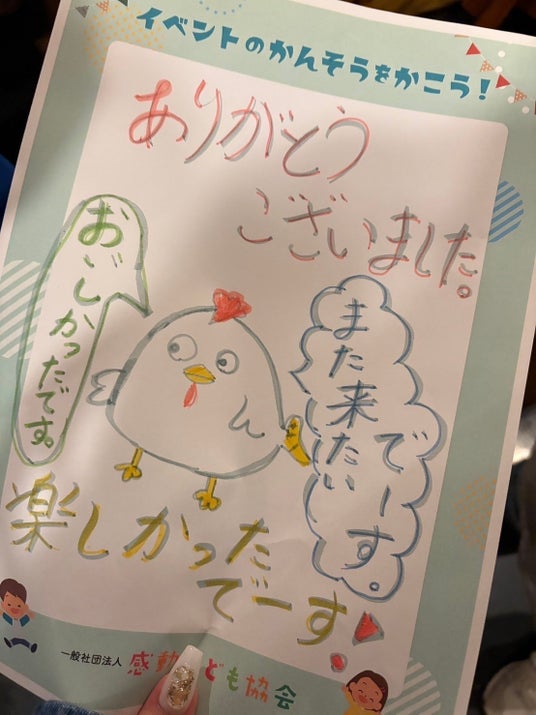 イベントのかんそうをかこう!
ありがとう
ございました。
おいしかったです。
また来たい
でーす。
楽しかった
でーす!
一般社団法人 感動こども協会